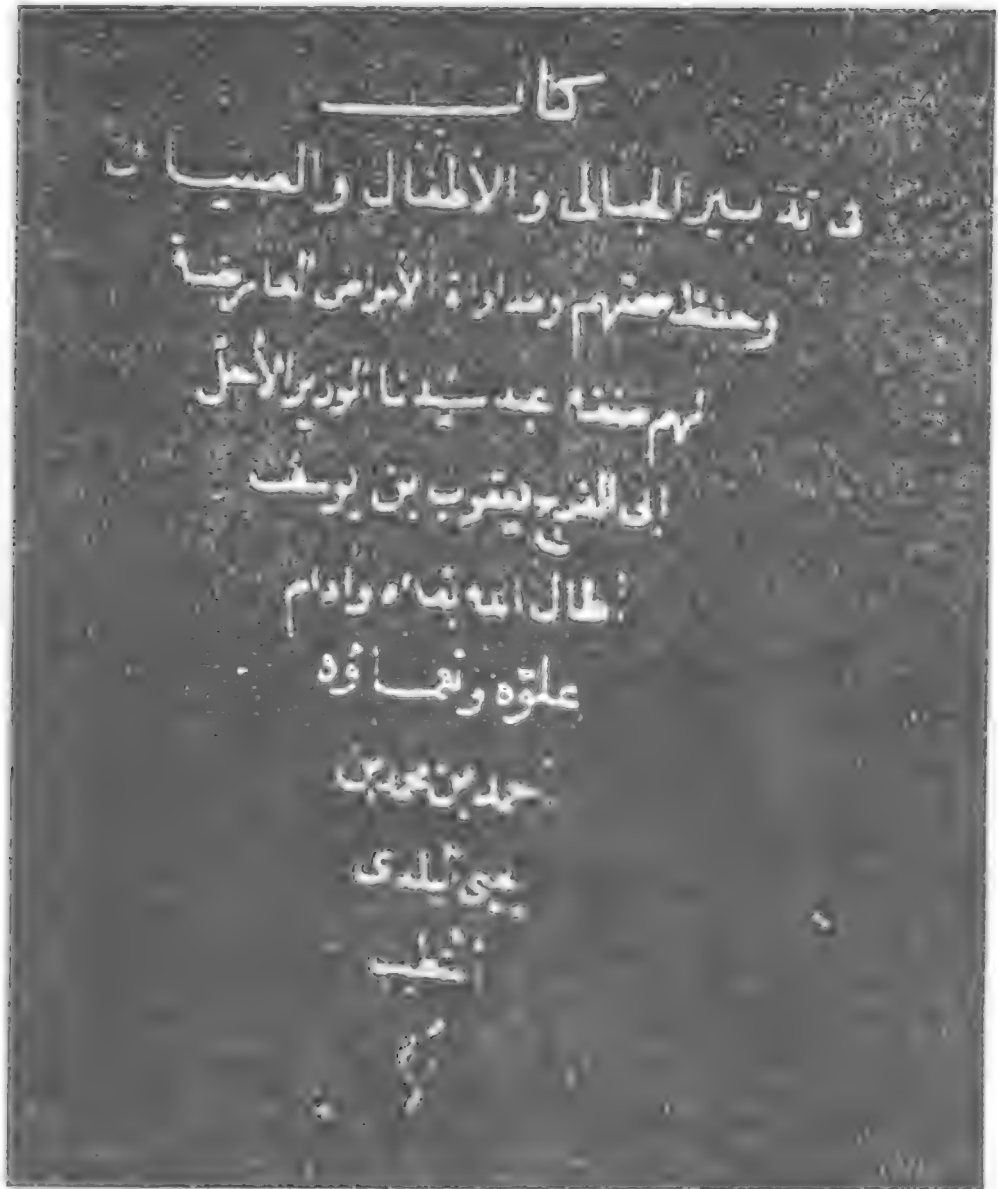 كتاب
فى تدبير الحبالى والأطفال والصبيان
وحفظ صحتهم ومداواة الأمراض العارضة
لهم صنفه عبد سيدنا الوزير الأجل
ابى الفرج يعقوب بن يوسف
أطال الله بقاءه وادام
علوّه ونعماؤه
احمد بن محمد بن
يحيى البلدى